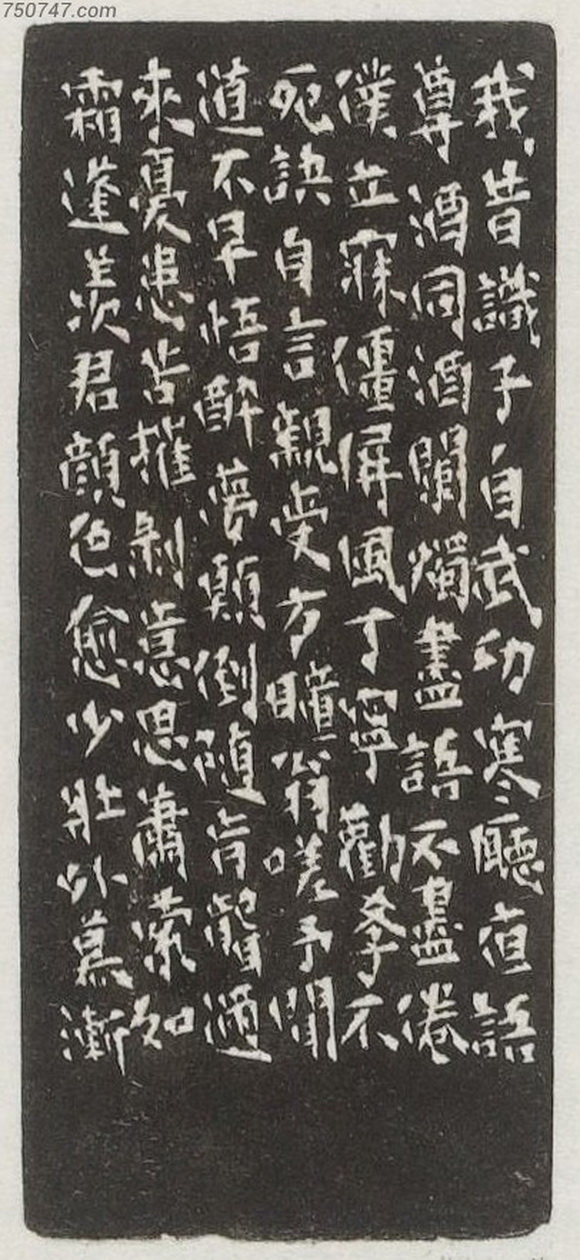 750747.com
我昔識子自武功寒廳亱語
尊酒同酒闌燭盡語不盡倦
僕立寐僵屏風丁寧勸斈不
死訣自言親受方瞳翁嗟予聞
道不早悟醉夢顛倒隨盲聾邇
來憂患苦摧剝意思蕭索如
霜蓬羨君顏色愈少壯外慕漸